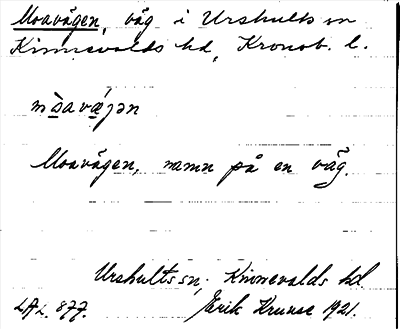 Moavägen, väg i Urshults sn
Kinnevalds hd, Kronob. l.
Moavägen, namn på en väg.
Urshults sn, Kinnevalds hd
Erik Kruuse 1921.